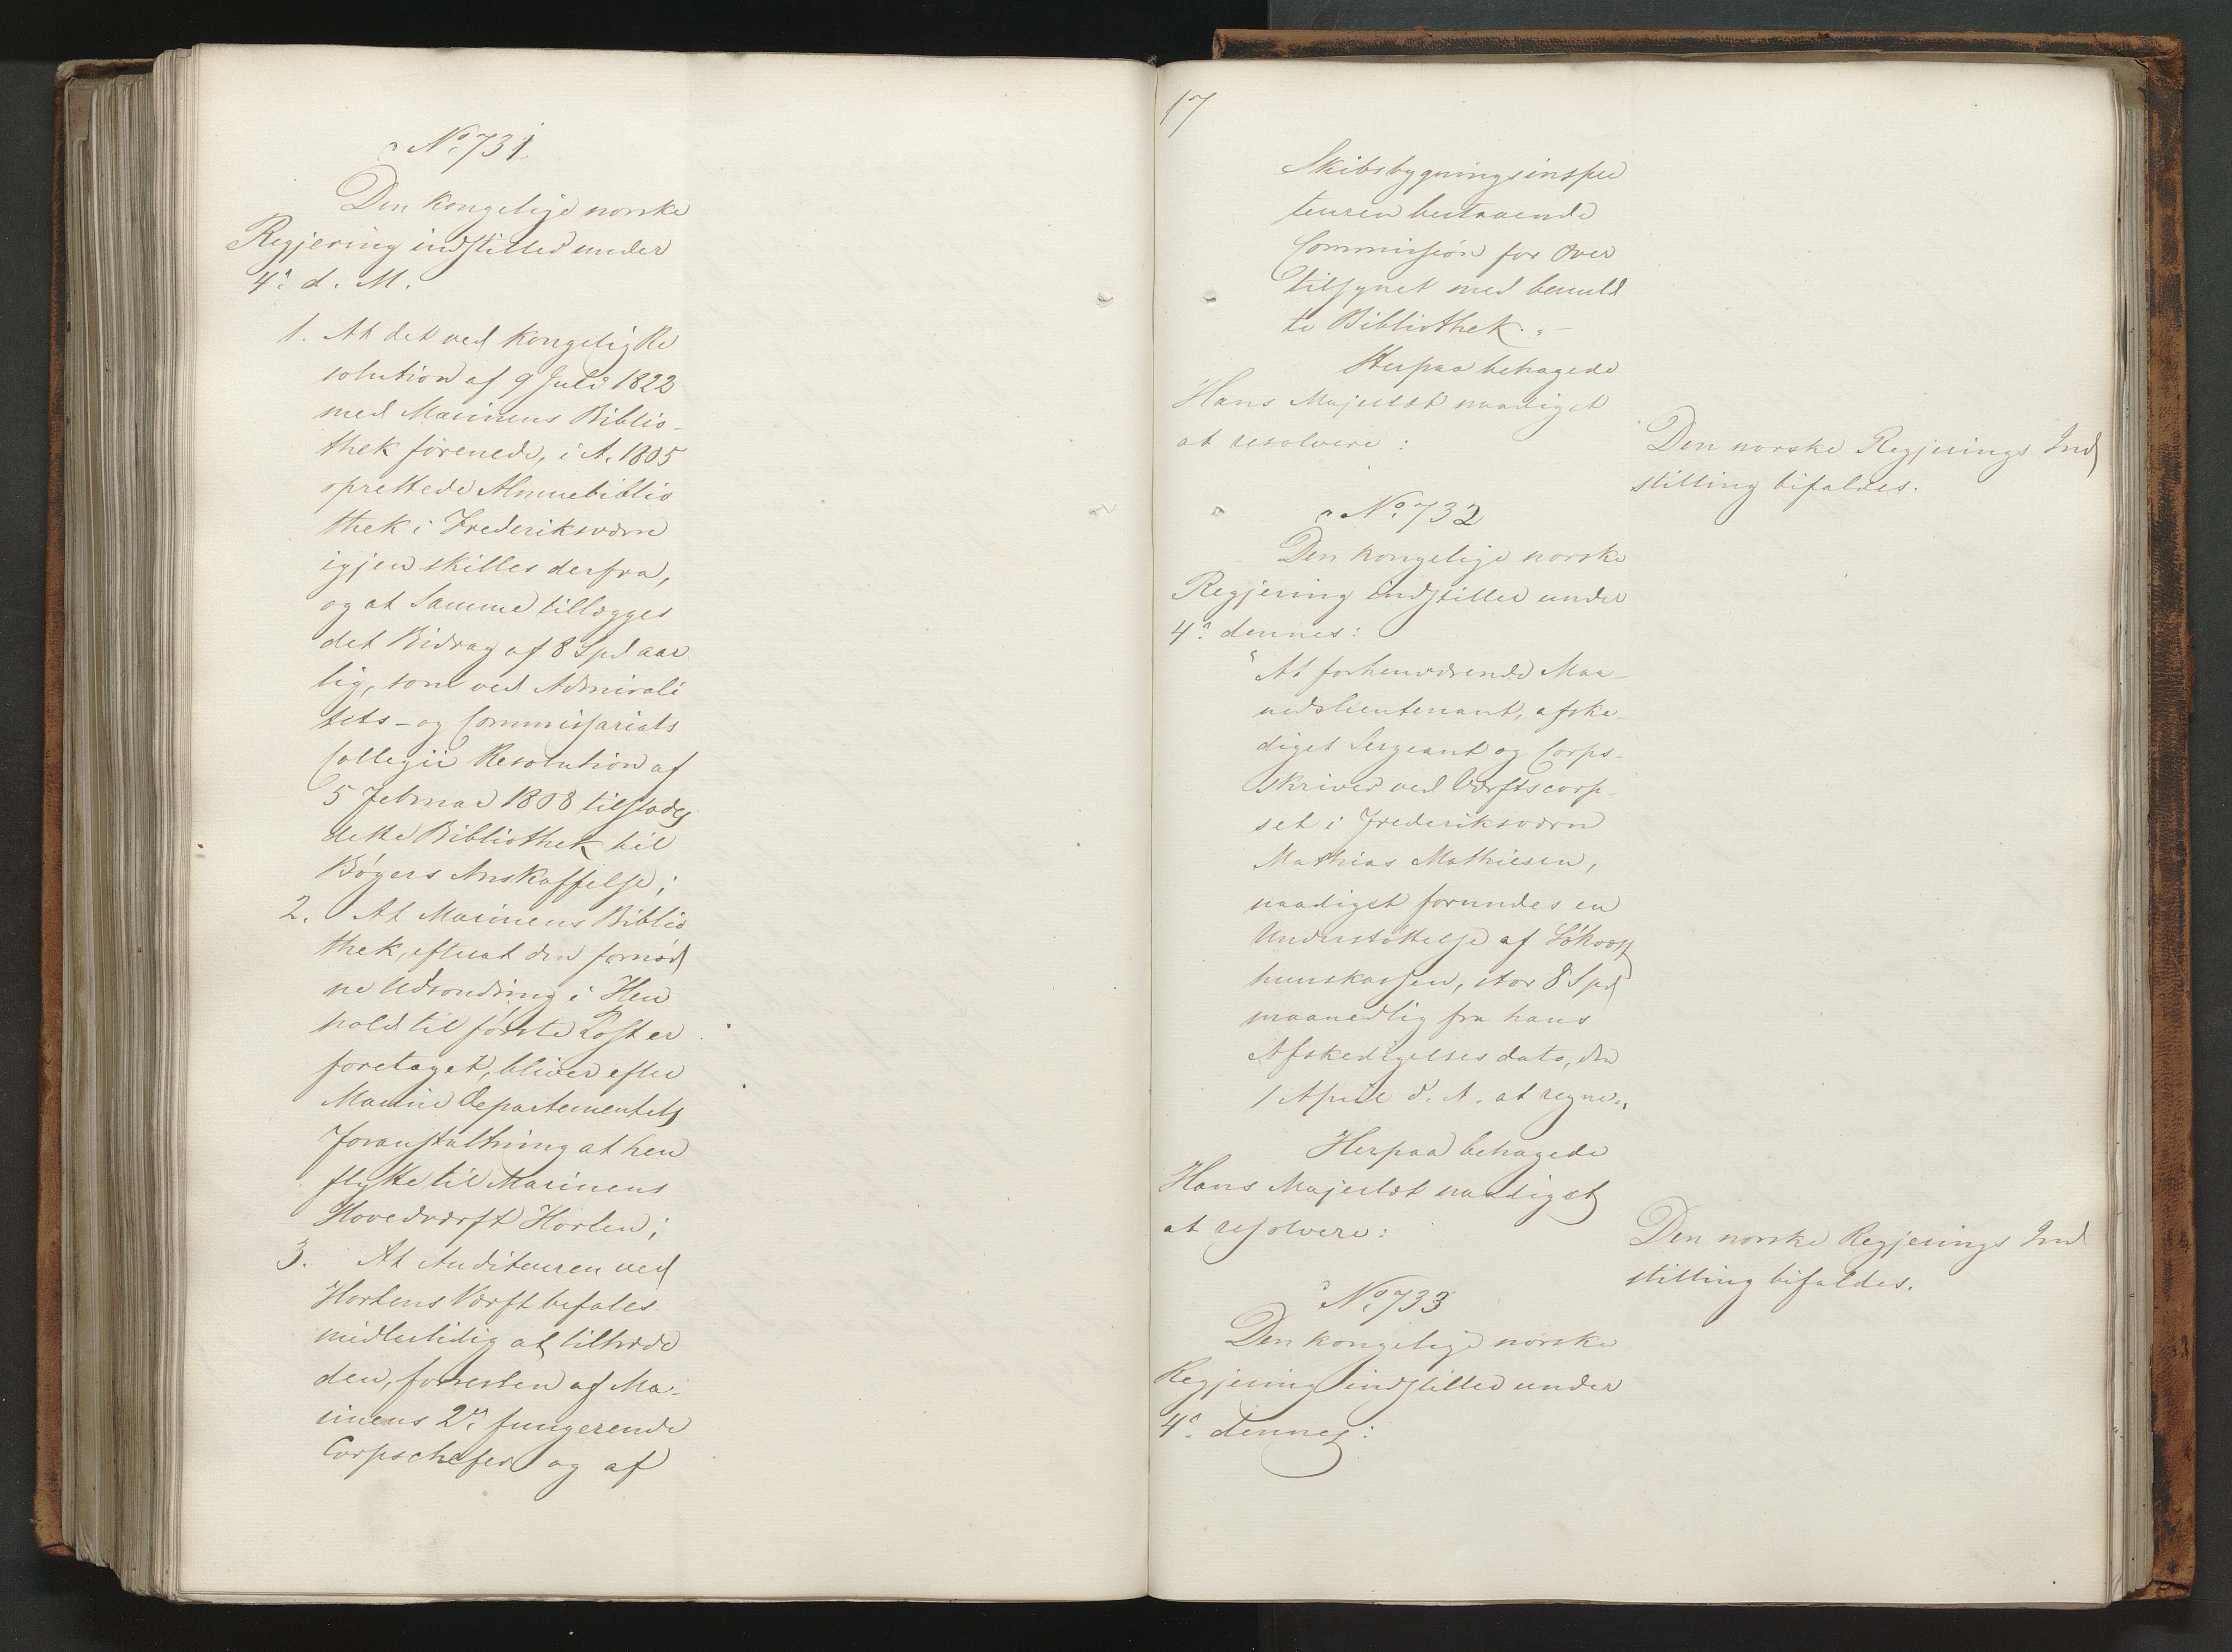 No 731
Den kongelige norske
Regjering indstiller under
4de d. M.
1. At det ved kongelig Re
solution af 9 Juli 1822
med Marinens Biblio-
thek forenede, i A. 1805
oprettede Almuebiblio
thek i Frederiksværn
igjen skilles derfra,
og at Samme tillægges
det Bidrag af 8 Spd aar
lig, som ved Admirali
tets- og Commissariats
Collegii Resolution af
5 Februar 1808 tilstodes
dette Bibliothek til
Bøgers Anskaffelse;
2. At Marinens Biblio
thek, efterat den fornød
ne Udsondring i Hen
hold til første Post er
foretaget, bliver efter
Marine Departementets
Foranstaltning at hen
flytte til Marinens
Hovedværft Horten;
3. At Auditeuren ved
Hortens Værft befales
midlertidig at tiltræde
den, forresten af Ma-
rinens 2de fungerende
Corpschefer og af
17
Skibsbygningsinspec
teuren bestaaende
Commission for Over
tilsynet med bemeld
te Bibliothek."-
Herpaa behagede
Hans Majestæt naadigst
at resolvere:
Den norske Regjerings Ind
stilling bifaldes.
No 732
Den kongelige norske
Regjering indstiller under
4de dennes:
"At forhenværende Maa-
nedslieutenant, afske-
diget Sergeant og Corps-
skriver ved Værftscorp-
set i Frederiksværn
Mathias Mathiesen,
naadigst forundes en
Understøttelse af Søkvæst
huuskassen, stor 8 Spd
maanedlig fra hans
Afskedigelses dato, den
1 April d. A. at regne."
Herpaa behagede
Hans Majestæt naadigst
at resolvere:
Den norske Regjerings Ind
stilling bifaldes.
No 733
Den kongelige norske
Regjering indstiller under
4de dennes: